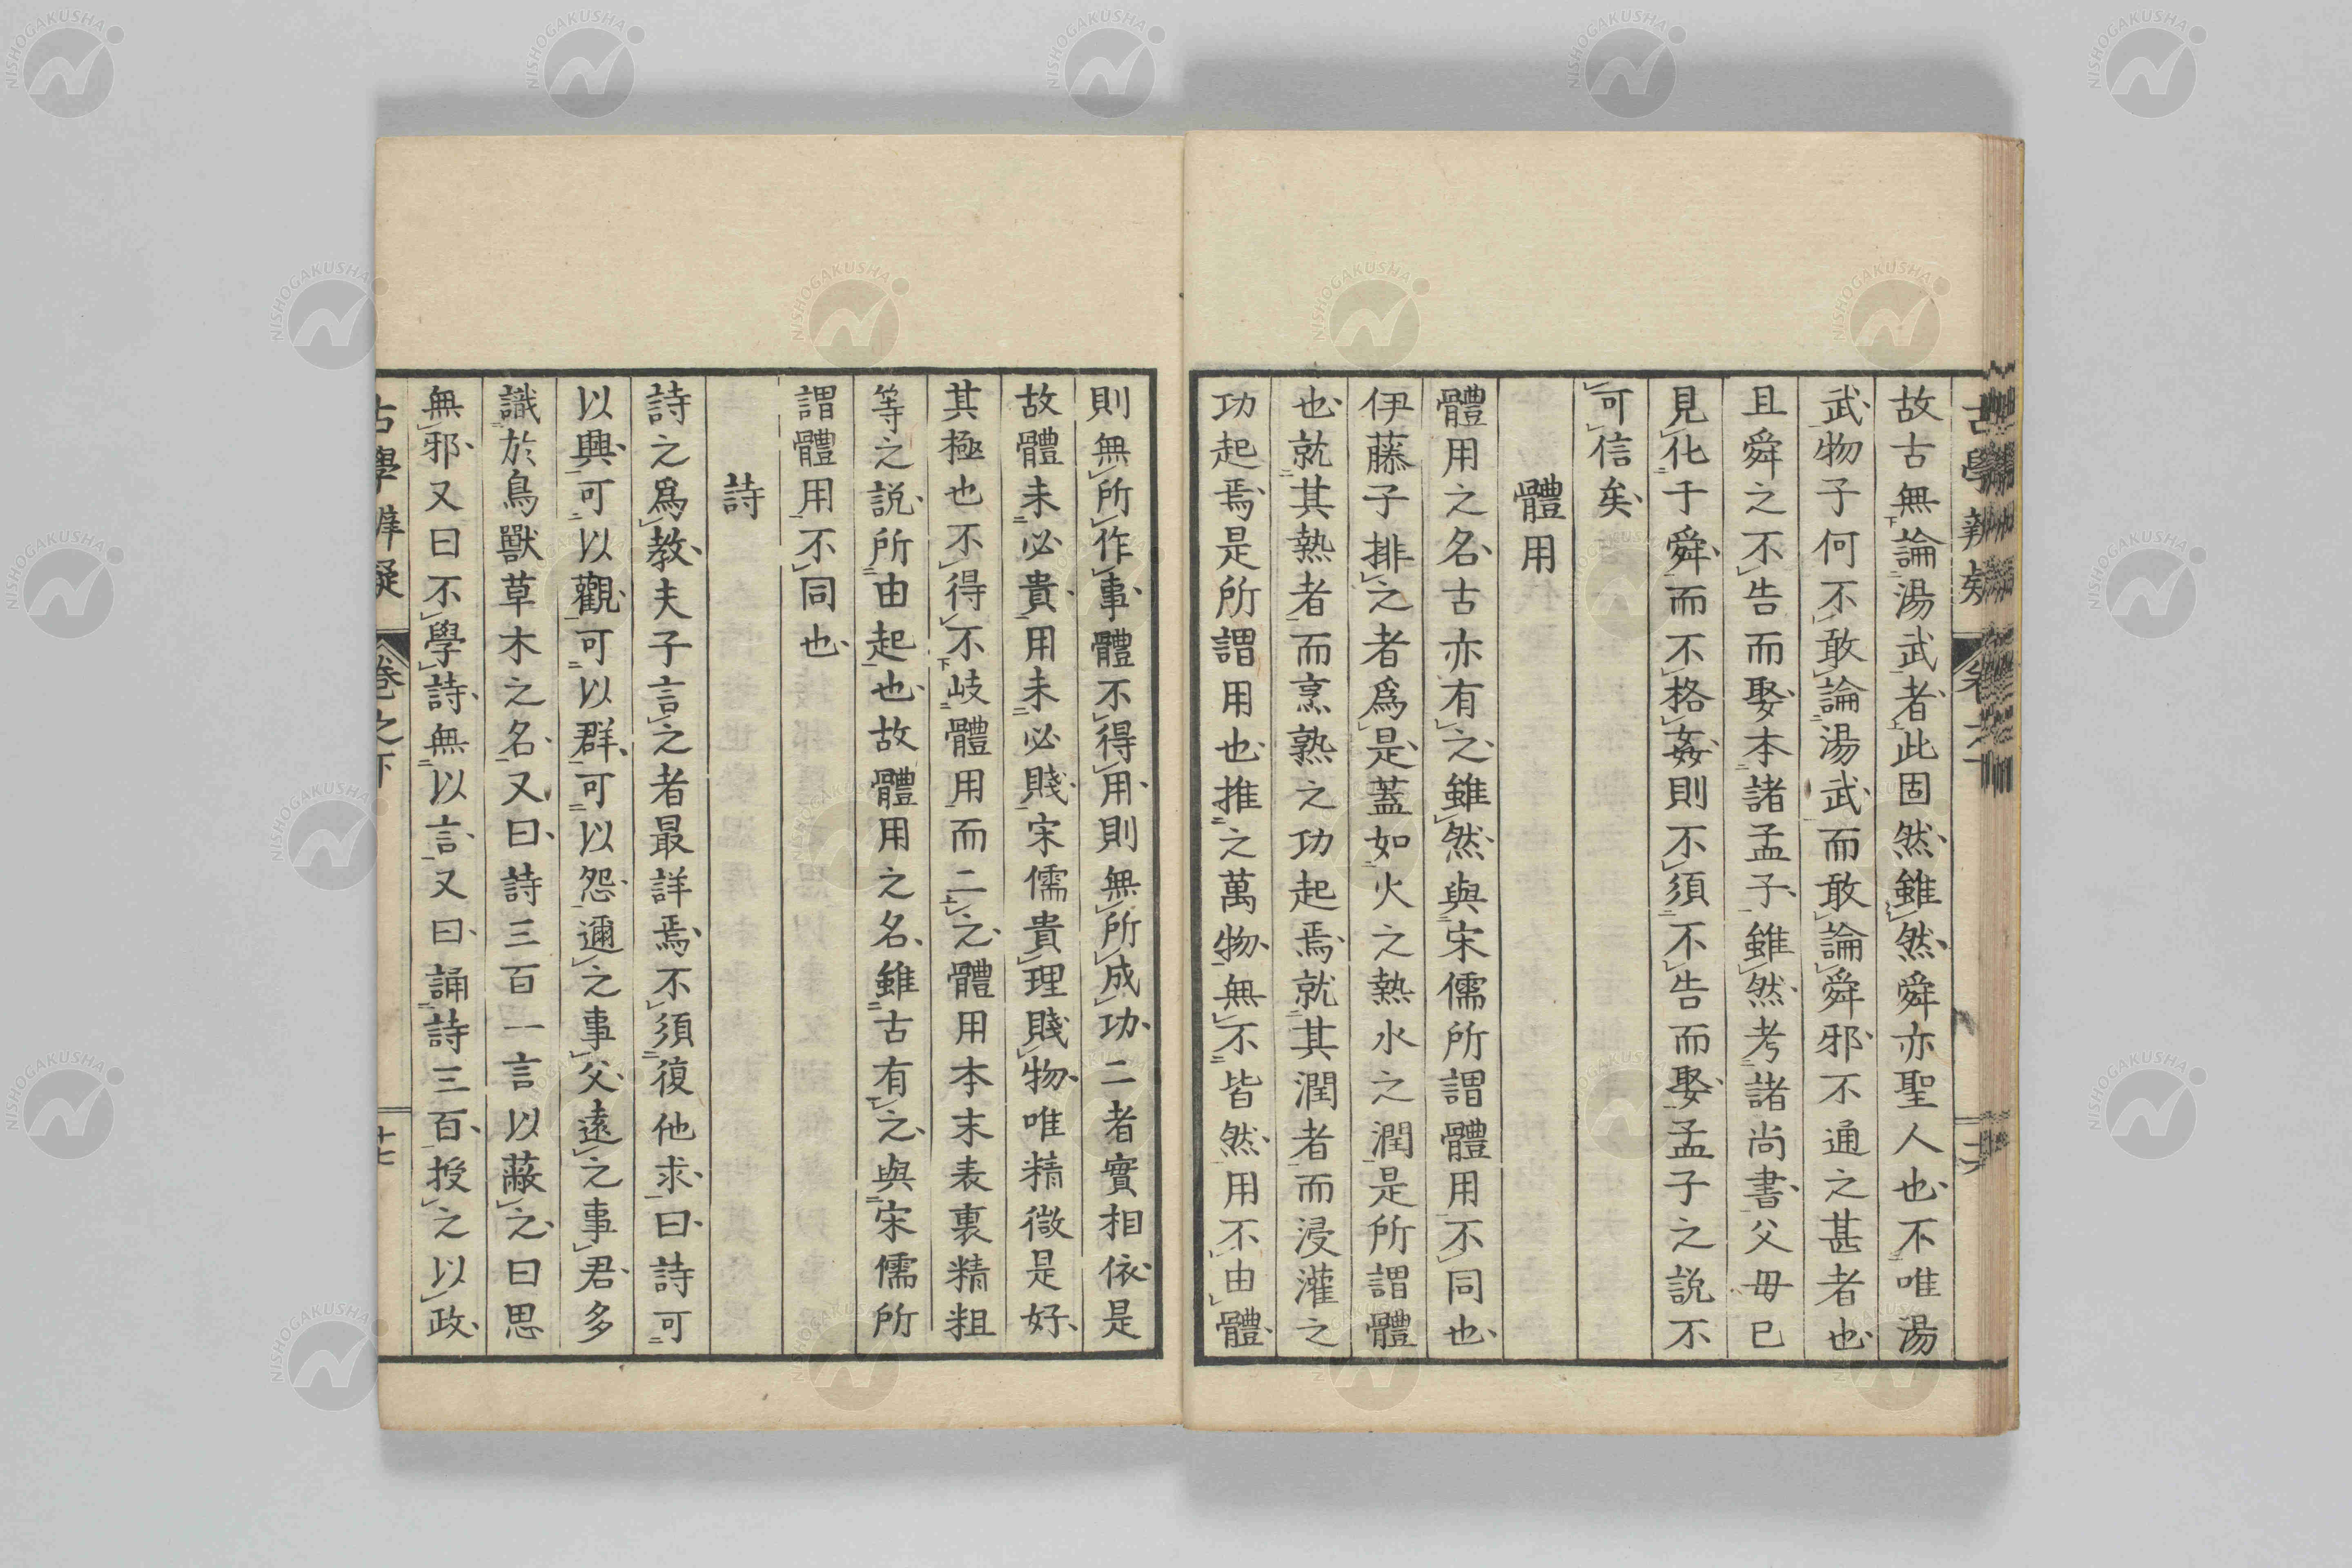 故古無論湯武者此固然雖然舜亦聖人也不唯湯
武物子何不敢論湯武而敢論舜邪不通之甚者也
且舜之不告而娶本諸孟子雖然考諸尚書父毋已
見化于舜而不格姦則不須不告而娶孟子之説不
可信矣
體用
體用之名古亦有之雖然與宋儒所謂體用不同也
伊藤子排之者爲是蓋如火之熱水之潤是所謂體
也就其熱者而烹熟之功起焉就其潤者而浸灌之
功起焉是所謂用也推之萬物無不皆然用不由體
則無所作事體不得用則無所成功二者實相依是
故體未必貴用未必賤宋儒貴理賤物唯精微是好
其極也不得不岐體用而二之體用本末表裏精粗
等之説所由起也故體用之名雖古有之與宋儒所
謂體用不同也
詩
詩之爲教夫子言之者最詳焉不須復他求曰詩可
以興可以觀可以群可以怨邇之事父遠之事君多
識於鳥獸草木之名又曰詩三百一言以蔽之曰思
無邪又曰不學詩無以言又曰誦詩三百授之以政
古學辨疑
卷之下
十七
NISHOGAKUSHA